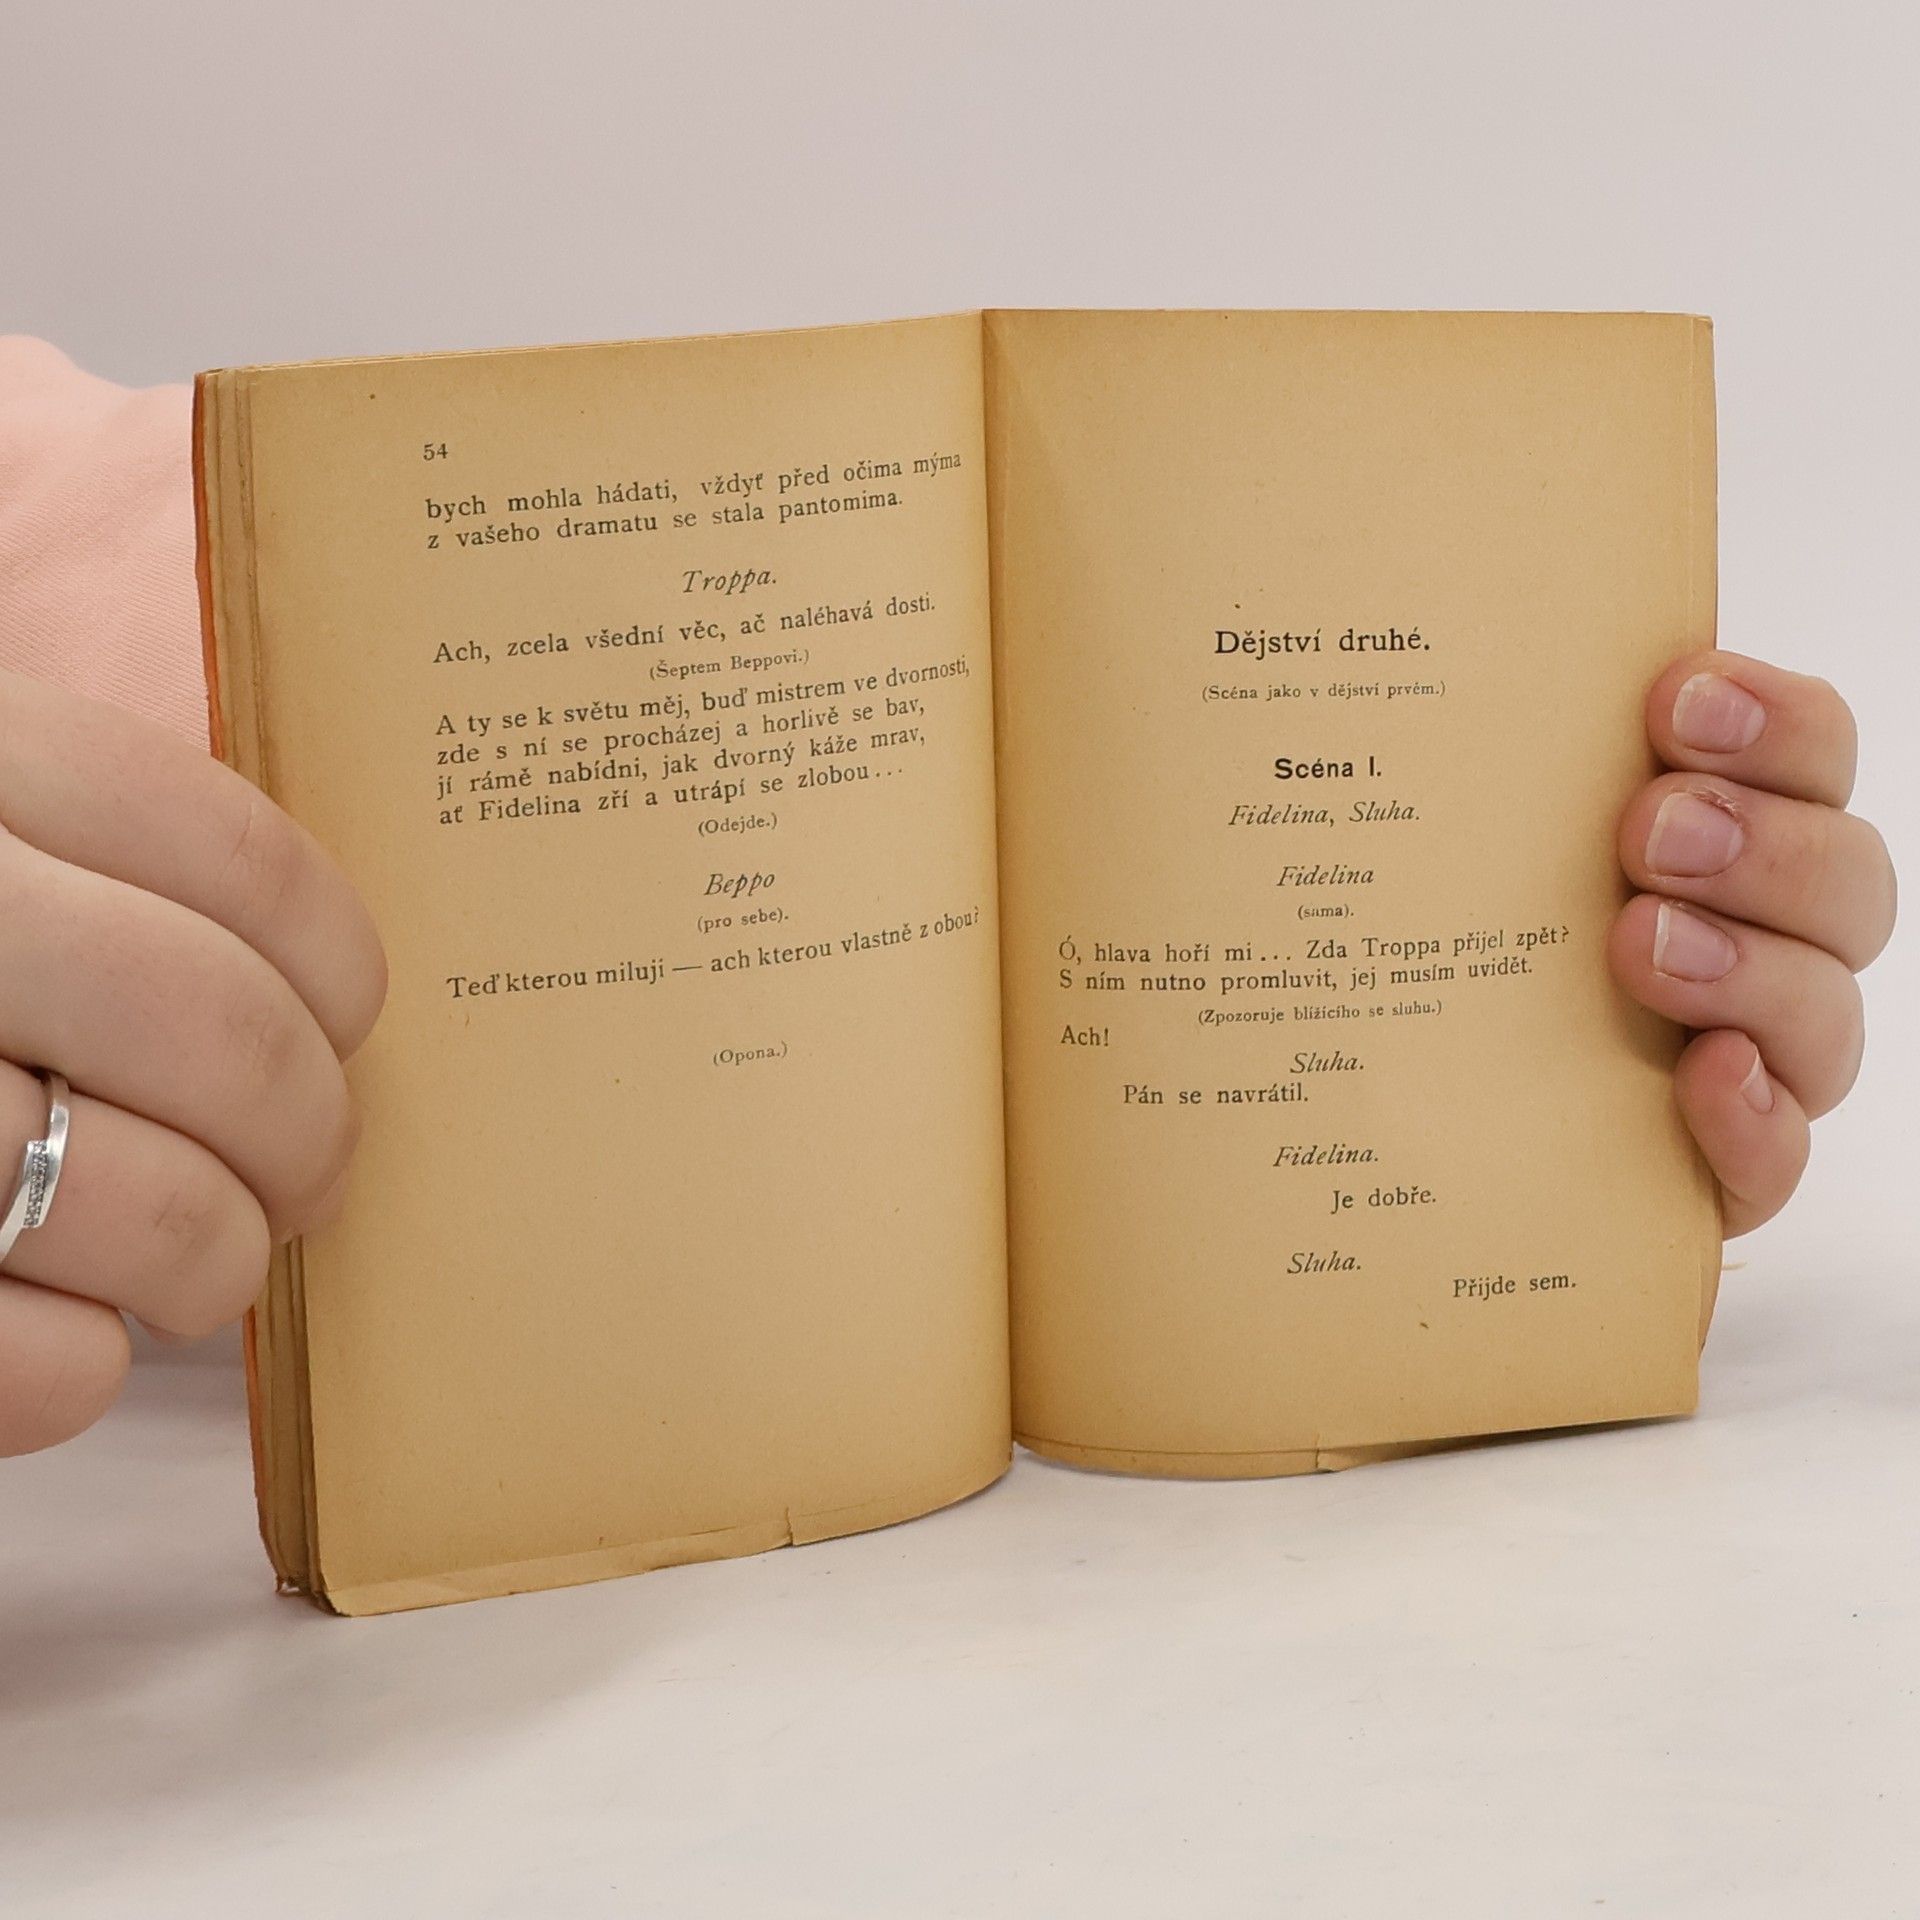 54
bych mohla hádati, vždyť před očima mýma
z vašeho dramatu se stala pantomima.
Troppa.
Ach, zcela všední věc, ač naléhavá dosti.
(Šeptem Beppovi.)
A ty se k světu měj, buď mistrem ve dvornosti,
zde s ní se procházej a horlivě se bav,
jí rámě nabídni, jak dvorný káže mrav,
ať Fidelina zří a utrápí se zlobou...
(Odejde.)
Beppo
(pro sebe).
Teď kterou miluji — ach kterou vlastně z obou?
(Opona.)
Dějství druhé.
(Scéna jako v dějství prvém.)
Scéna I.
Fidelina, Sluha.
Fidelina
(sama).
Ó, hlava hoří mi... Zda Troppa přijel zpět?
S ním nutno promluvit, jej musím uvidět.
(Zpozoruje blížícího se sluhu.)
Ach!
Sluha.
Pán se navrátil.
Fidelina.
Je dobře.
Sluha.
Přijde sem.